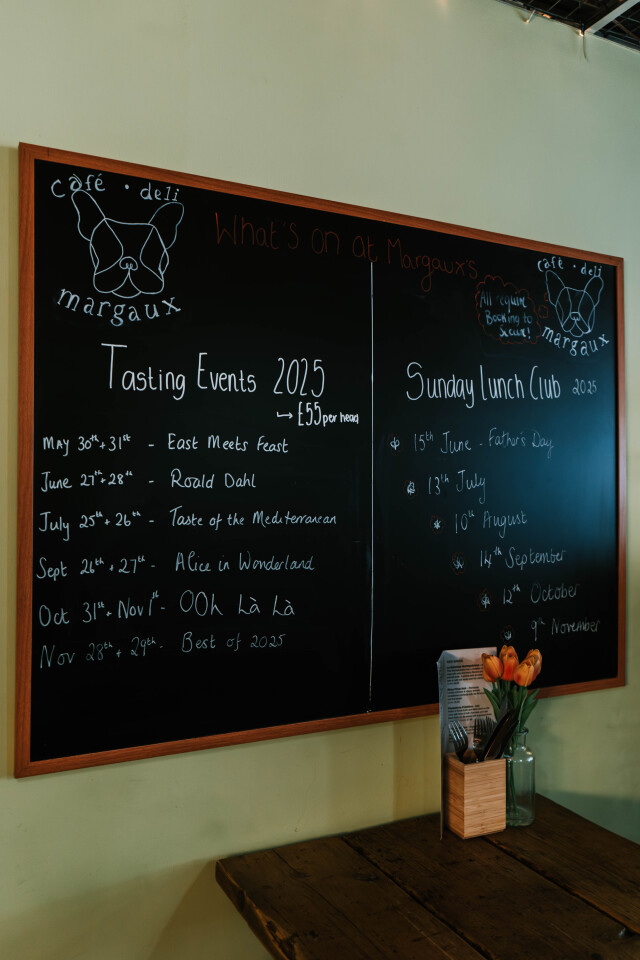 café • deli
margaux
What's on at Margaux's
All require
Booking to
Secure!
café • deli
margaux
Tasting Events 2025
→ £55 per head
May 30th + 31st - East Meets Feast
June 27th + 28th - Roald Dahl
July 25th + 26th - Taste of the Mediterranean
Sept 26th + 27th - Alice in Wonderland
Oct 31st + Nov 1st - OOh Là Là
Nov 28th + 29th - Best of 2025
Sunday Lunch Club 2025
15th June - Father's Day
13th July
10th August
14th September
12th October
9th November